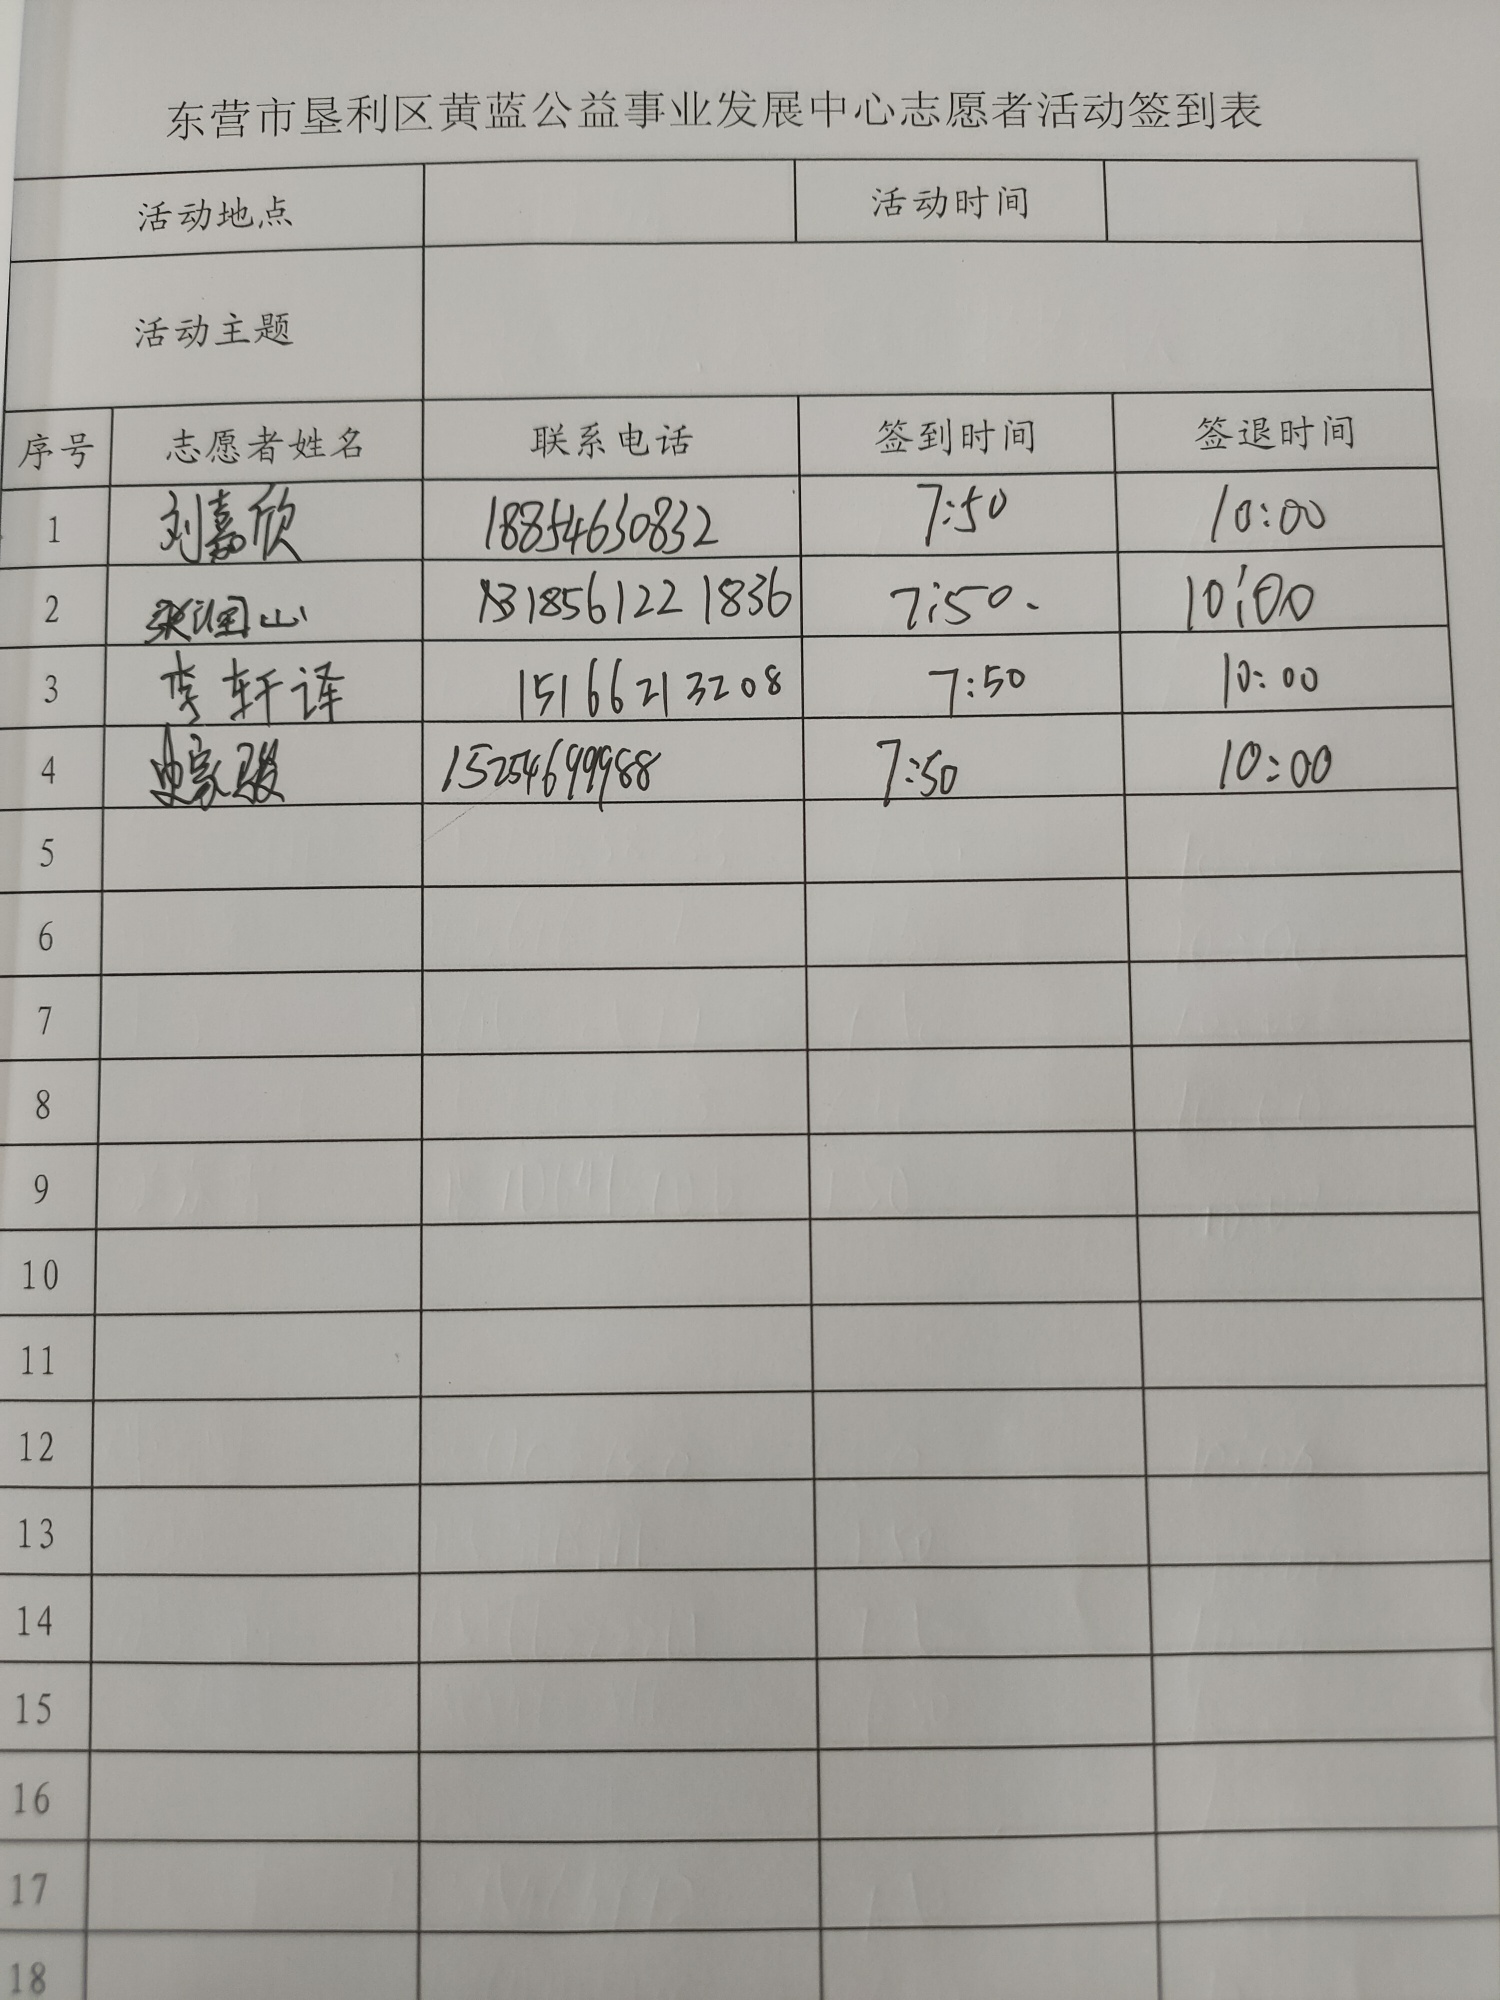 东营市垦利区黄蓝公益事业发展中心志愿者活动签到表
活动地点 活动时间
活动主题
序号 志愿者姓名 联系电话 签到时间 签退时间
1 刘嘉欣 18854630832 7:50 10:00
2 山 1836 7:50. 10:00
3 李轩译 15166213208 7:50 10:00
4 15254699988 7:50 10:00
5
6
7
8
9
10
11
12
13
14
15
16
17
18